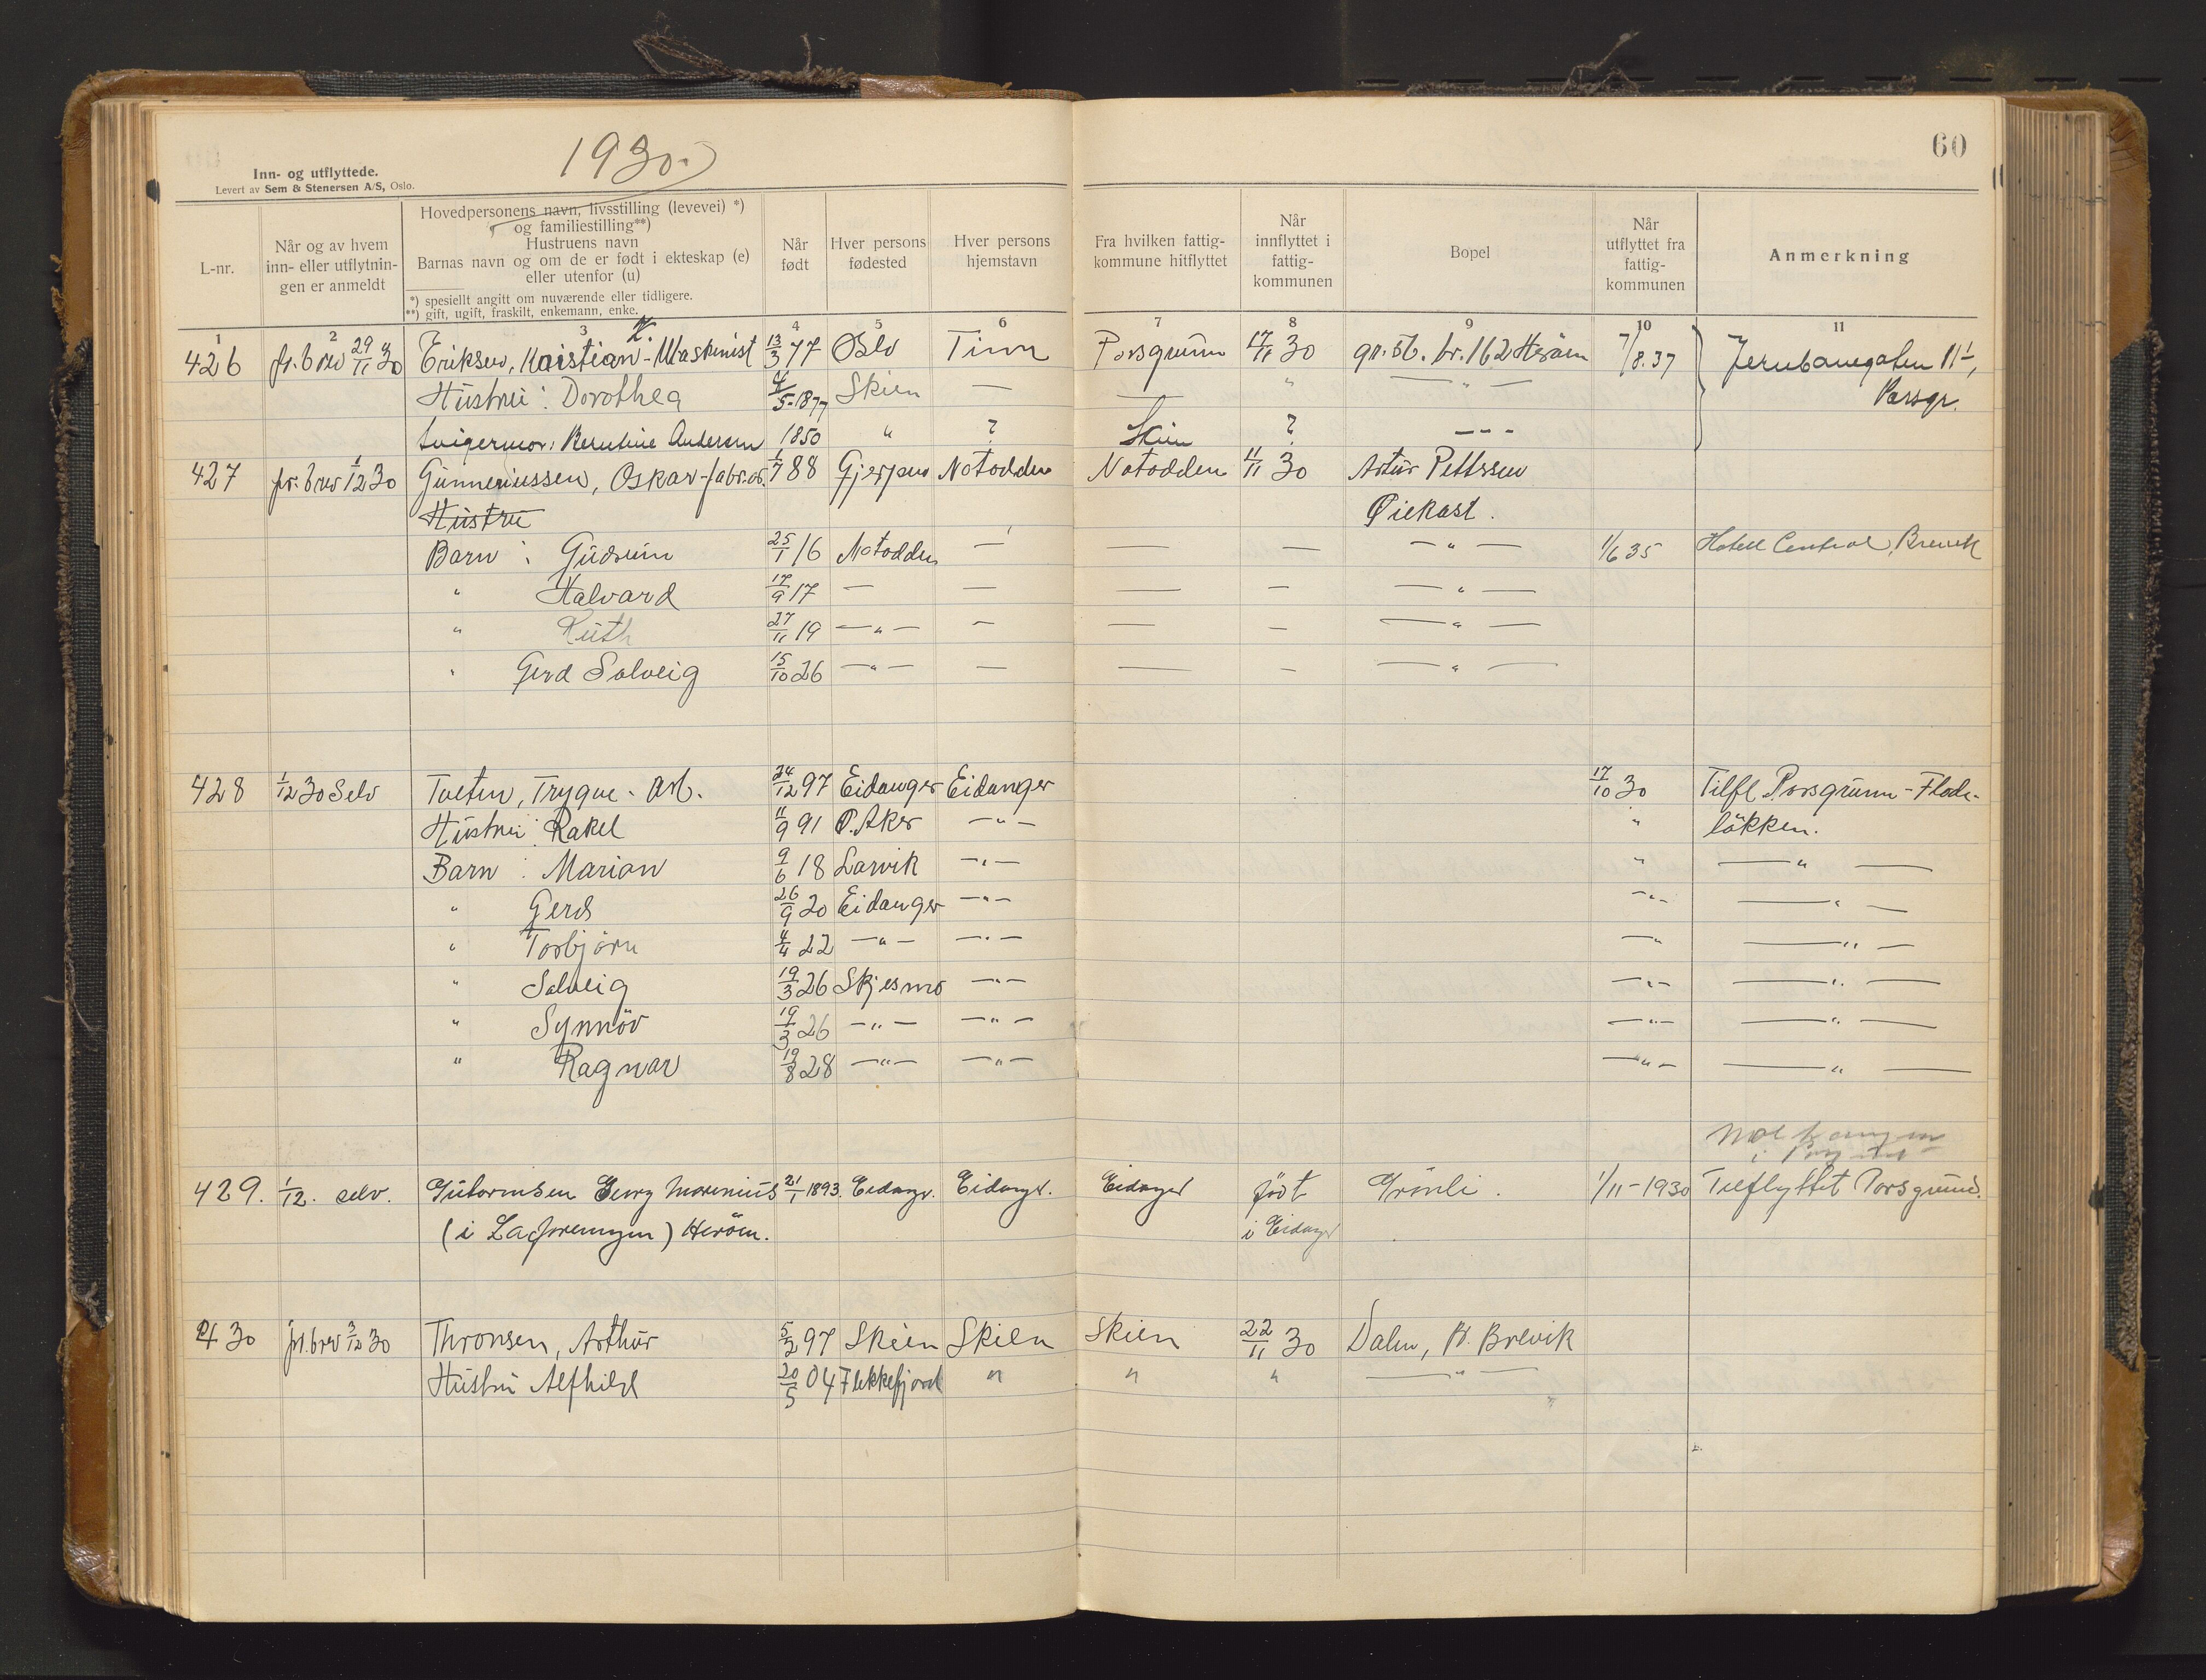 1930.
60
Inn- og utflyttede.
Levert av Sem & Stenersen A/S, Oslo.
L-nr.
Når og av hvem inn- eller utflytnin-gen er anmeldt
Hovedpersonens navn, livsstilling (levevei) *)
og familiestilling**)
Hustruens navn
Barnas navn og om de er født i ekteskap (e)
eller utenfor (u)
*) spesiellt angitt om nuværende eller tidligere.
**) gift, ugift, fraskilt, enkemann, enke.
Når født
Hver persons fødested
Hver persons hjemstavn
Fra hvilken fattig-kommune hitflyttet
Når innflyttet i fattig-kommunen
Bopel
Når utflyttet fra fattig-kommunen
Anmerkning
1 2 3 4 5 6 7 8 9 10 11
426 pr. brev 29/11 30 Eriksen, Kristian - Maskinist 13/3 77 Oslo Tinn Porsgrunn 17/11 30 gn. 56. br. 162 Herøen 7/8.37 Jernbanegaten 11 I,
Hustru: Dorothea 4/5-1877 Skien — — " — " — Porsgr.
Svigermor: Berntine Andersen 1850 " ? Skien ? — " —
427 pr. brev 1/12 30 Gunneriussen, Oskar - fabr.arb. 1/7 88 Gjerpen Notodden Notodden 11/11 30 Artur Pettersen
Hustru Øiekast.
Barn: Gudrun 25/1 16 Notodden — — — — " — 1/6 35 Hotell Central, Brevik
" Halvard 17/9 17 — — — — — " —
" Ruth 27/11 19 — " — — — — — " —
" Gerd Solveig 15/10 26 — " — — — — — " —
428 1/12 30 Selv Tveten, Trygve - Arb. 24/12 97 Eidanger Eidanger 17/10 30 Tilfl. Porsgrunn - Flade-
Hustru: Rakel 11/9 91 Ø. Aker — " — " løkken.
Barn: Marion 9/6 18 Larvik — " — " — " —
" Gerd 26/9 20 Eidanger — " — — " — — " —
" Torbjørn 4/4 22 — " — — " — — " — " —
" Solveig 19/3 26 Skjesmo — " — — " — — " —
" Synnöv 19/3 26 — " — — " — — " — — " —
" Ragnar 19/8 28 — " — — " — — " — — " —
429. 1/12. selv. Gutormsen Georg Marenius 21/1 1893. Eidang. Eidang. Eidanger født Grönli. 1/11-1930 Tilflyttet Porsgrund.
( i ) Herøen. i Eidanger
430 pr. brev 3/12 30 Thronsen, Arthur 5/2 97 Skien Skien Skien 22/11 30 Dalen, Pr. Brevik
Hustru Alfhild 20/5 04 Flekkefjord " " " — " —